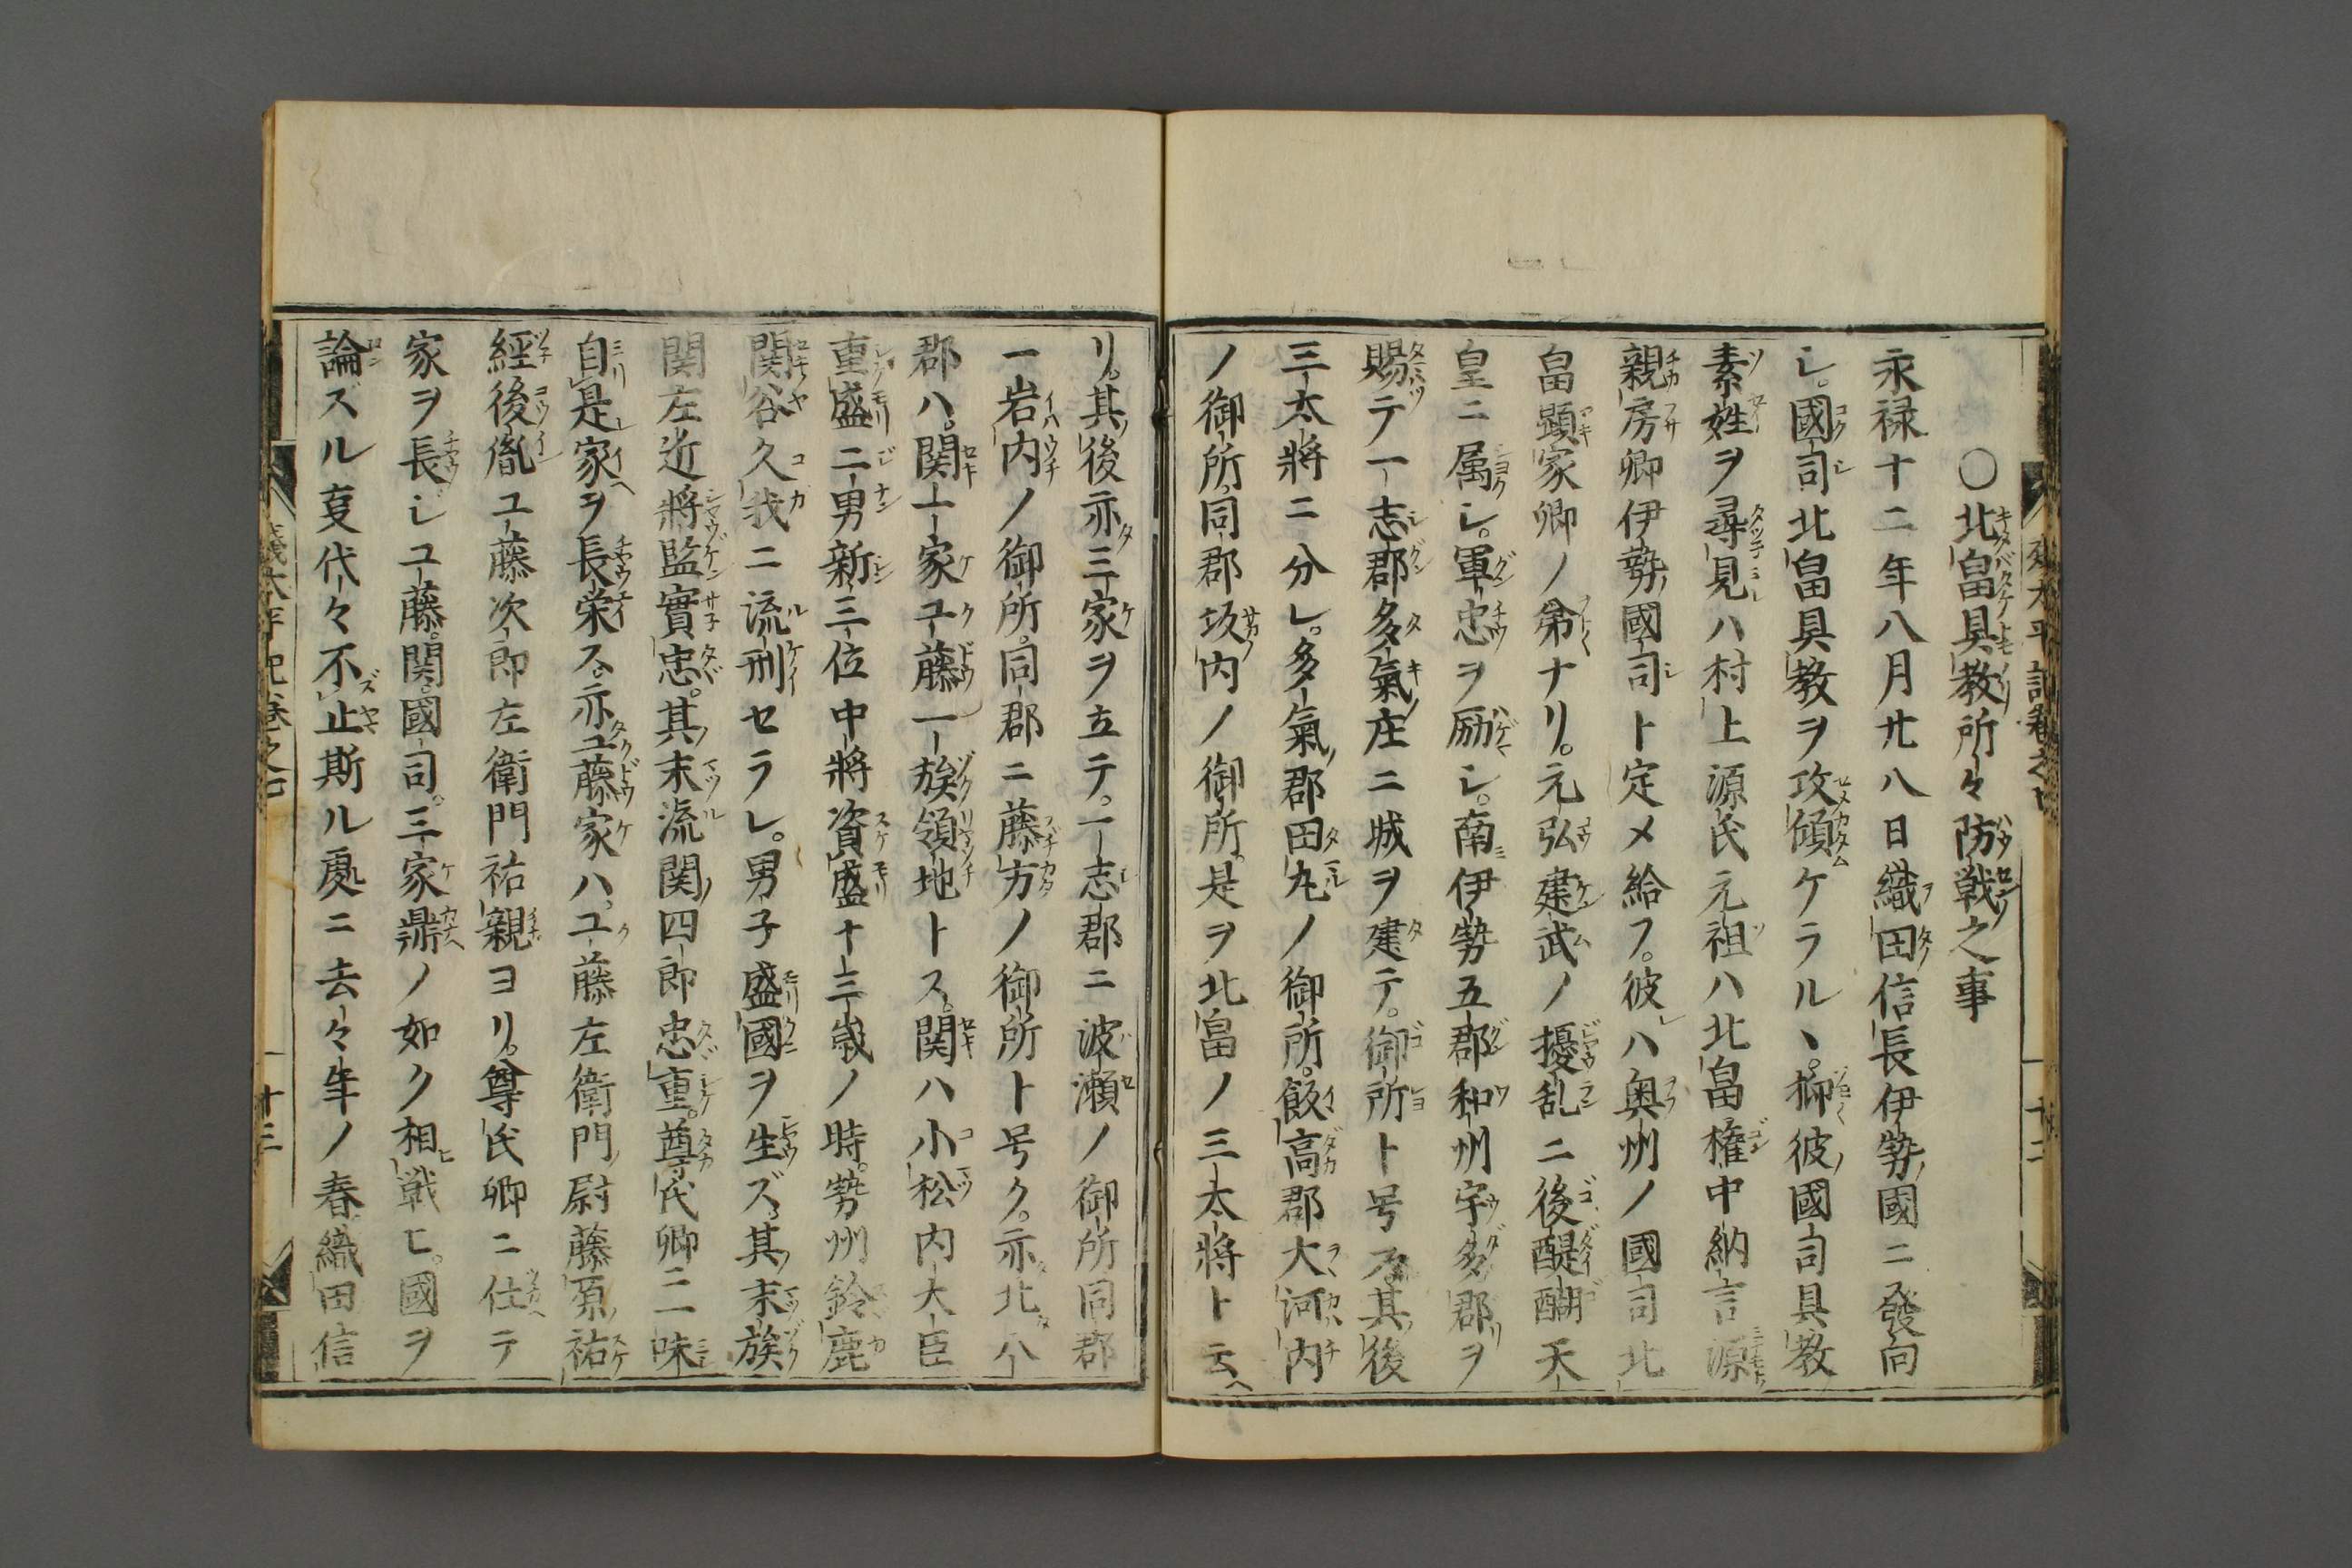 〇北畠具教所々防戦之事
永禄十二年八月廿八日織田信長伊勢國ニ發向
シ。國司北畠具教ヲ攻傾ケラルヽ。抑彼國司具教
素姓ヲ尋見ハ村上源氏元祖ハ北畠権中納言源
親房卿伊勢國司ト定メ給フ。彼ハ奥州ノ國司北
畠顕家卿ノ弟ナリ。元弘建武ノ擾乱ニ後醍醐天
皇ニ属シ。軍忠ヲ励シ。南伊勢五郡和州宇多郡ヲ
賜テ一志郡多氣庄ニ城ヲ建テ。御所ト号ス。其後
三太将ニ分レ。多氣郡田丸ノ御所。飯高郡大河内
ノ御所。同郡坂内ノ御所。是ヲ北畠ノ三太将ト云ヘ
リ。其後亦三家ヲ立テ。一志郡ニ波瀬ノ御所同郡
一岩内ノ御所。同郡ニ藤方ノ御所ト号ク。亦北八
郡ハ。関一家工藤一族領地トス。関ハ小松内大臣
重盛二男新三位中将資盛十三歳ノ時。勢州鈴鹿
関谷久我ニ流刑セラレ。男子盛國ヲ生ズ。其末族
関左近将監實忠。其末流関四郎忠重。尊氏卿ニ味
自是家ヲ長栄ス。亦工藤家ハ。工藤左衛門尉藤原祐
經後胤工藤次郎左衛門祐親ヨリ。尊氏卿ニ仕テ
家ヲ長ジ工藤。関。國司。三家鼎ノ如ク相戦ヒ。國ヲ
論ズル亊代々不止斯ル處ニ去々年ノ春織田信
十三